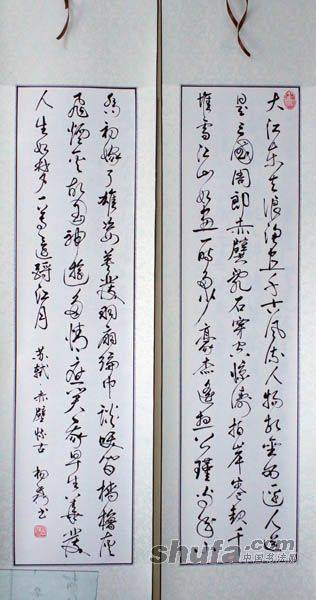 大江东去浪淘尽千古风流人物故垒西边人道
是三國周郎赤壁乱石穿空惊涛拍岸卷起千
堆雪江山如画一时多少豪杰遥想公瑾当年
乔初嫁了雄姿英发羽扇纶巾谈笑间樯橹灰
飞烟灭故国神游多情应笑我早生华发
人生如梦一尊还酹江月 苏轼 赤壁怀古 书
shufa.com
中国书法网